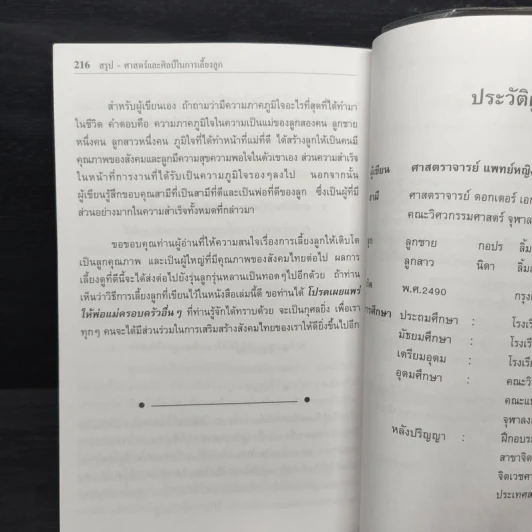 216 สรุป - ศาสตร์และศิลป์ในการเลี้ยงลูก
สำหรับผู้เขียนเอง ถ้าถามว่ามีความภาคภูมิใจอะไรที่สุดที่ได้ทำมา
ในชีวิต คำตอบคือ ความภาคภูมิใจในความเป็นแม่ของลูกสองคน ลูกชาย
หนึ่งคน ลูกสาวหนึ่งคน ภูมิใจที่ได้ทำหน้าที่แม่ที่ดี ได้สร้างลูกให้เป็นคนมี
คุณภาพของสังคมและลูกมีความสุขความพอใจในตัวเขาเอง ส่วนความสำเร็จ
ในหน้าที่การงานที่ได้รับเป็นความภูมิใจรองๆลงไป นอกจากนั้น
ผู้เขียนรู้สึกขอบคุณสามีที่เป็นสามีที่ดีและเป็นพ่อที่ดีของลูก ซึ่งเป็นผู้ที่มี
ส่วนอย่างมากในความสำเร็จทั้งหมดที่กล่าวมา
ขอขอบคุณท่านผู้อ่านที่ให้ความสนใจเรื่องการเลี้ยงลูกให้เติบโต
เป็นลูกคุณภาพ และเป็นผู้ใหญ่ที่มีคุณภาพของสังคมไทยต่อไป ผลการ
เลี้ยงดูที่ดีนี้จะได้ส่งต่อไปยังรุ่นลูกรุ่นหลานเป็นทอดๆไปอีกด้วย ถ้าท่าน
เห็นว่าวิธีการเลี้ยงลูกที่เขียนไว้ในหนังสือเล่มนี้ดี ขอท่านได้ โปรดเผยแพร่
ให้พ่อแม่ครอบครัวอื่นๆ ที่ท่านรู้จักได้ทราบด้วย จะเป็นกุศลยิ่ง เพื่อเรา
ทุกๆ คนจะได้มีส่วนร่วมในการเสริมสร้างสังคมไทยของเราให้ดียิ่งขึ้นไปอีก
ประวัติ
ผู้เขียน ศาสตราจารย์ แพทย์หญิง
ศาสตราจารย์ ดอกเตอร์
คณะวิศวกรรมศาสตร์
ลูกชาย กอปร
ลูกสาว นิดา
พ.ศ.2490
ประถมศึกษา :
มัธยมศึกษา :
เตรียมอุดม :
อุดมศึกษา : คณะ
หลังปริญญา :